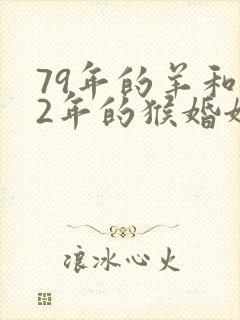 79年的羊和
2年的猴婚姻
浪冰心火